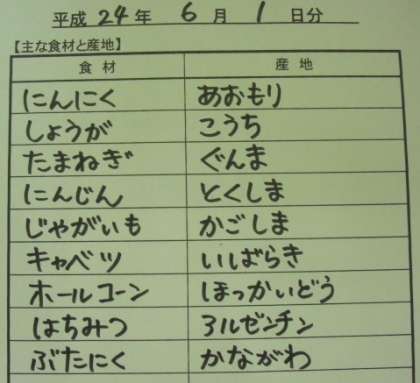 平成 24 年 6 月 1 日分
【主な食材と産地】
食材 産地
にんにく あおもり
しょうが こうち
たまねぎ ぐんま
にんじん とくしま
じゃがいも かごしま
キャベツ いばらき
ホールコーン ほっかいどう
はちみつ アルゼンチン
ぶたにく かながわ